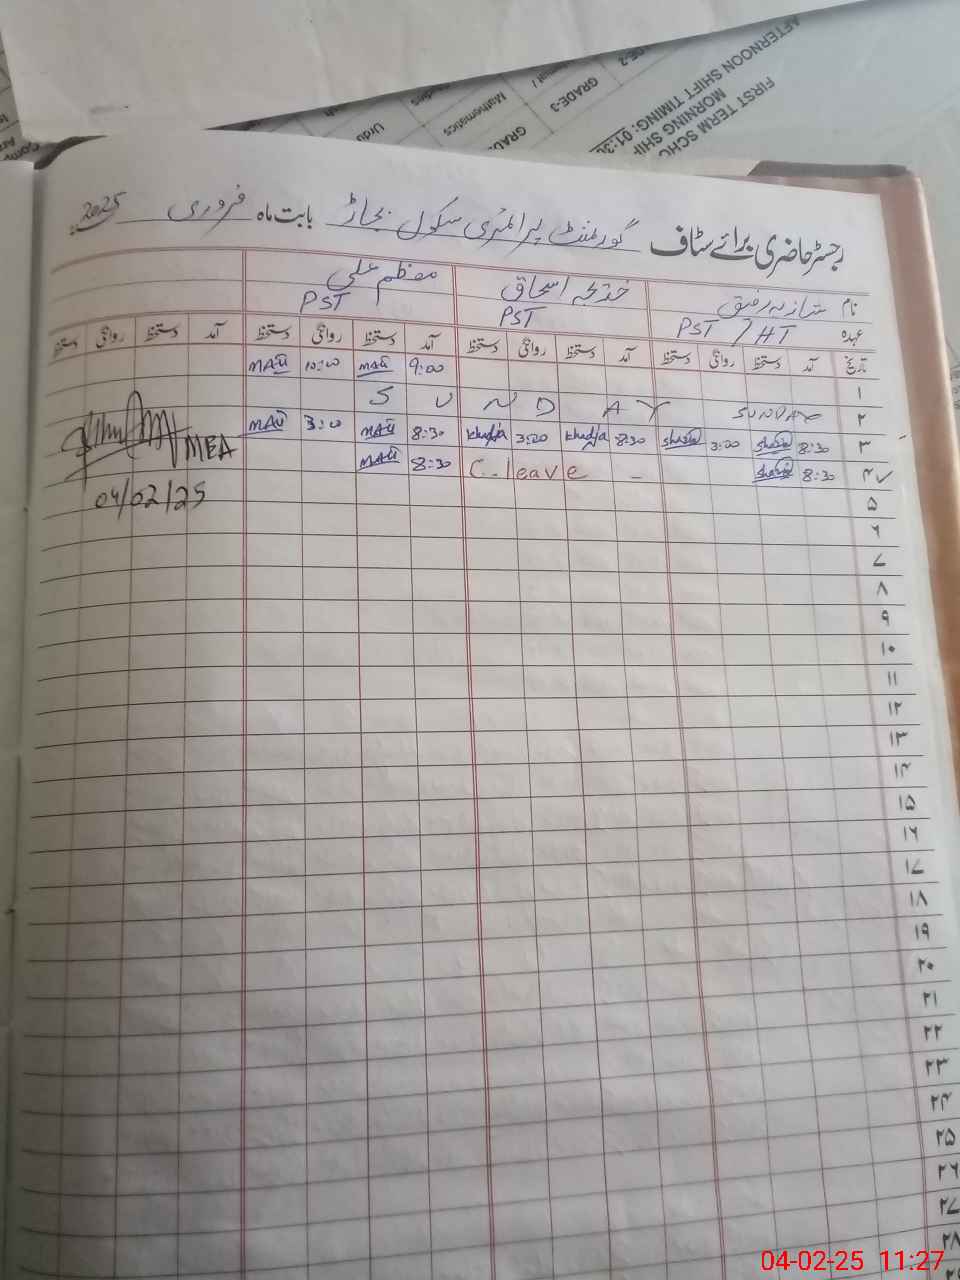 FIRST TERM SCHO
MORNING SHIF
AFTERNOON SHIFT TIMING: 01:3
GRADE-3
GRA
Mathematics
Urdu
رجسٹر حاضری برائے سٹاف گورنمنٹ پرائمری سکول بجاڑ بابت ماہ فروری 2025ء
نام شازیہ رفیق خدیجہ اسحاق معظم علی
عہدہ PST / HT PST PST
تاریخ آمد دستخط روانگی دستخط آمد دستخط روانگی دستخط آمد دستخط روانگی دستخط آمد دستخط روانگی دستخط
۱ 9:00 MAli 10:00 MAli
۲ SUNDAY S U N D A Y
۳ 8:30 Shazia 3:00 Shazia 8:30 Khadija 3:00 Khadija 8:30 MAli 3:00 MAli
۴ 8:30 Shazia - C. leave 8:30 MAli
MEA
04/02/25
۵
۶
۷
۸
۹
۱۰
۱۱
۱۲
۱۳
۱۴
۱۵
۱۶
۱۷
۱۸
۱۹
۲۰
۲۱
۲۲
۲۳
۲۴
۲۵
۲۶
۲۷
۲۸
04-02-25 11:27